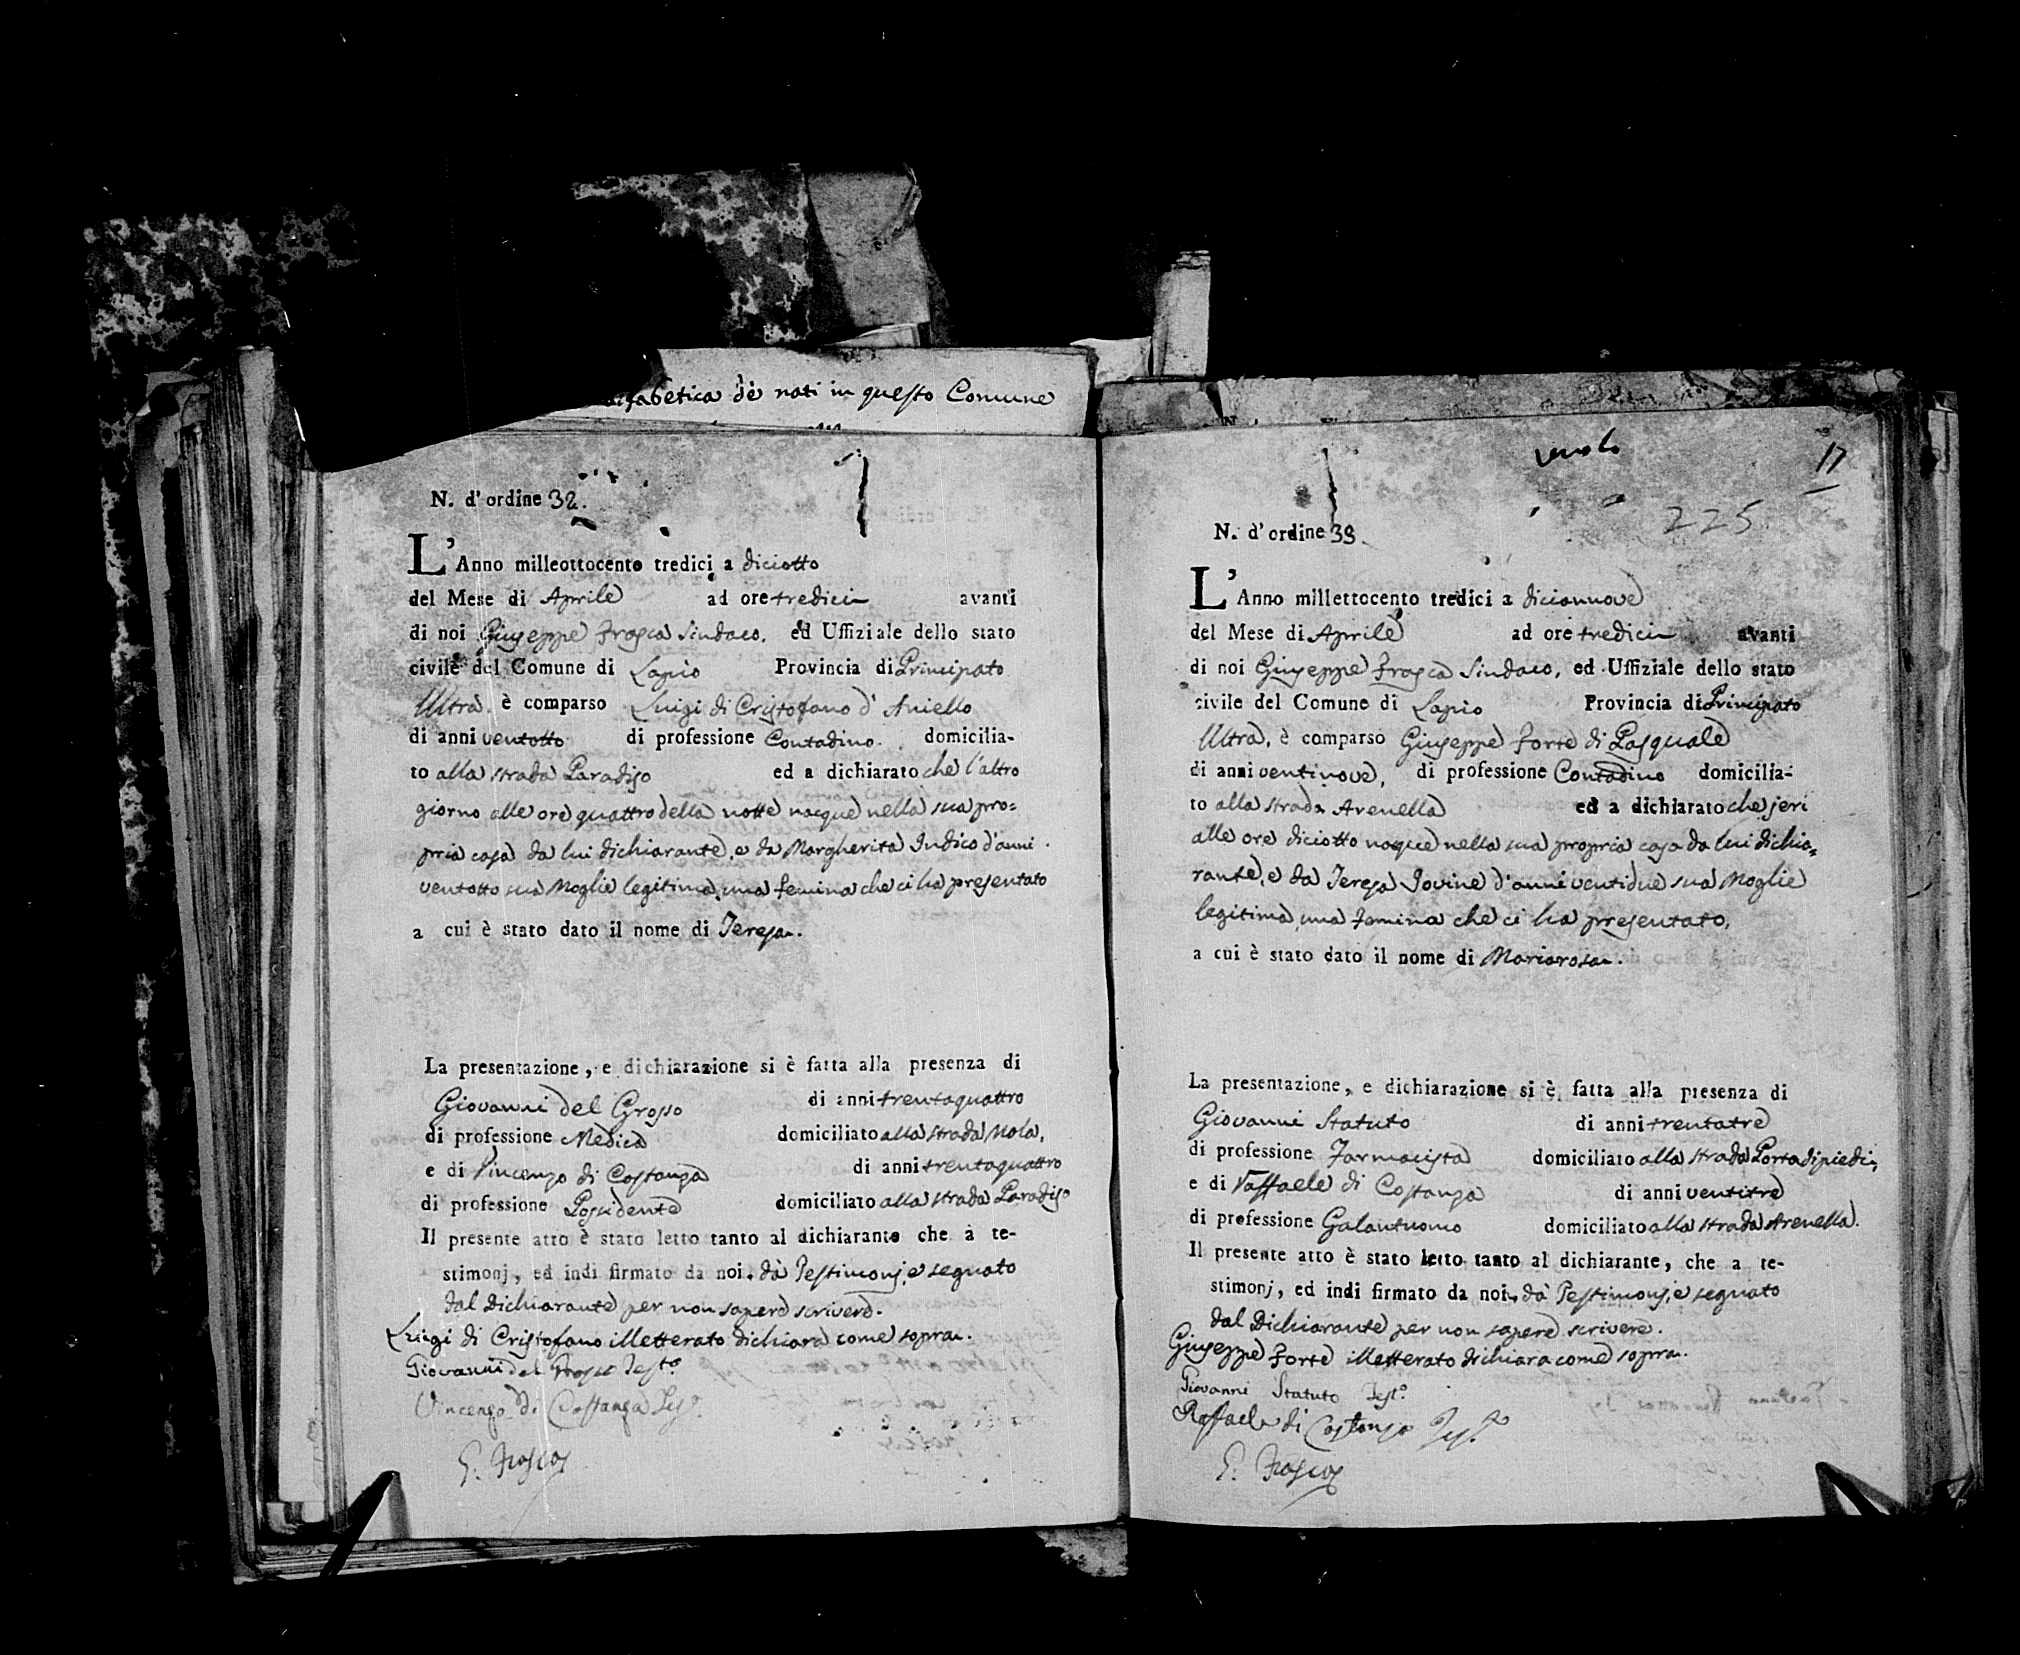 alfabetica de nati in questo Comune
N. d'ordine 32.
L'Anno milleottocento tredici a diciotto
del Mese di Aprile ad ore tredici avanti
di noi Giuseppe Frasca Sindaco, ed Uffiziale dello stato
civile del Comune di Lapio Provincia di Principato
Ultra, è comparso Luigi di Cristofano d'Aniello
di anni ventotto di professione Contadino domicilia-
to alla strada Paradiso ed a dichiarato che l'altro
giorno alle ore quattro della notte nacque nella sua pro=
pria casa da lui dichiarante, e da Margherita Indico d'anni
ventotto sua Moglie legitima, una femina che ci ha presentato
a cui è stato dato il nome di Teresa.
La presentazione, e dichiarazione si è fatta alla presenza di
Giovanni del Grosso di anni trentaquattro
di professione Medico domiciliato alla strada Mola,
e di Vincenzo di Costanza di anni trentaquattro
di professione Possidente domiciliato alla strada Paradiso
Il presente atto è stato letto tanto al dichiarante che a te-
stimonj, ed indi firmato da noi, da Testimonj, e segnato
dal Dichiarante per non sapere scrivere.
Luigi di Cristofano illetterato dichiara come sopra.
Giovanni del Grosso Test.o
Vincenzo di Costanza Tes.o
G. Frasca
vuolo
17
225
N. d'ordine 33
L'Anno millettocento tredici a diciannove
del Mese di Aprile ad ore tredici avanti
di noi Giuseppe Frasca Sindaco, ed Uffiziale dello stato
civile del Comune di Lapio Provincia di Principato
Ultra, è comparso Giuseppe Forte di Pasquale
di anni ventinove, di professione Contadino domicilia-
to alla strada Arenella ed a dichiarato che jeri
alle ore diciotto nacque nella sua propria casa da lui dichia=
rante, e da Teresa Iovine d'anni ventidue sua Moglie
legitima, una femina che ci ha presentato,
a cui è stato dato il nome di Mariarosa.
La presentazione, e dichiarazione si è fatta alla presenza di
Giovanni Statuto di anni trentatre
di professione Farmacista domiciliato alla strada Portadipiedi,
e di Raffaele di Costanza di anni ventitre
di professione Galantuomo domiciliato alla strada Arenella.
Il presente atto è stato letto tanto al dichiarante, che a te-
stimonj, ed indi firmato da noi, da Testimonj, e segnato
dal Dichiarante per non sapere scrivere.
Giuseppe Forte illetterato dichiara come sopra.
Giovanni Statuto Test.o
Raffaele di Costanza Tes.o
G. Frasca